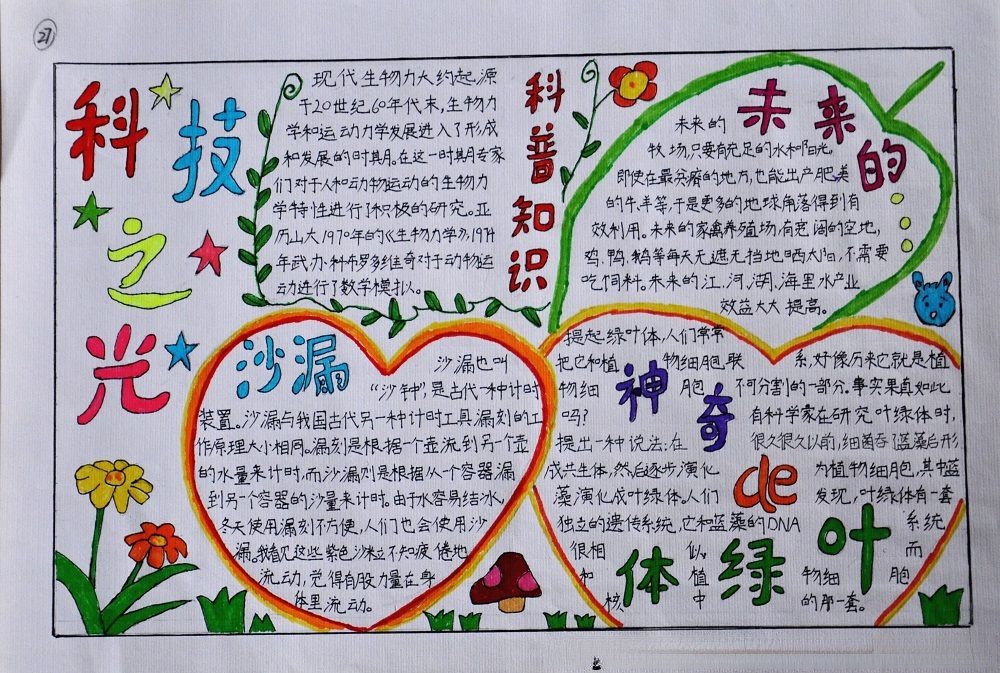 27
科技之光
现代生物力大约起源
于20世纪60年代末,生物力
学和运动力学发展进入了形成
和发展的时期。在这一时期专家
们对于人和动物运动的生物力
学特性进行了积极的研究。亚
历山大1970年的《生物力学》,1974
年武力·科布罗多维奇对于动物运
动进行了数学模拟。
科普知识
未来的
未来的
牧场,只要有充足的水和阳光,
即使在最贫瘠的地方,也能出产肥美
的牛、羊等,于是更多的地球角落得到有
效利用。未来的家禽养殖场,有宽阔的空地,
鸡、鸭、鹅等每天无遮无挡地晒太阳,不需要
吃饲料。未来的江、河、湖、海里水产业
效益大大提高。
沙漏
沙漏也叫
“沙钟”,是古代一种计时
装置。沙漏与我国古代另一种计时工具漏刻的工
作原理大小相同。漏刻是根据一个壶流到另一个壶
的水量来计时,而沙漏则是根据从一个容器漏
到另一个容器的沙量来计时。由于水容易结冰,
冬天使用漏刻不方便,人们也会使用沙
漏。我看见这些紫色沙粒不知疲倦地
流动,觉得有股力量在身
体里流动。
神奇de
体绿叶
提起绿叶体,人们常常
把它和植物细胞联系,好像历来它就是植
物细胞不可分割的一部分。事实果真如此
吗?有科学家在研究叶绿体时,
提出一种说法:在很久很久以前,细菌吞了蓝藻后形
成共生体,然后逐步演化为植物细胞,其中蓝
藻演化成叶绿体。人们发现,叶绿体有一套
独立的遗传系统,它和蓝藻的DNA系统
很相似,而
和植物细胞
核中的那一套。